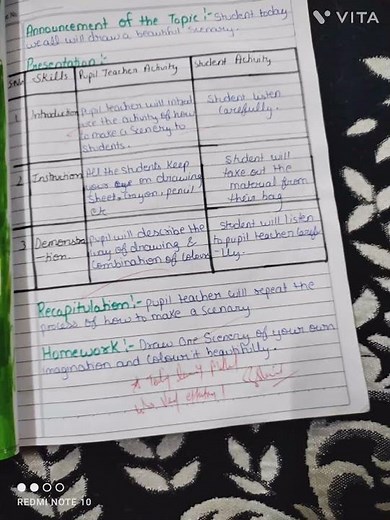 VITA
Announcement of the Topic:- Student today
we all will draw a beautiful scenery.
Presentation:-
Skills Pupil Teacher Activity Student Activity
1 Introduction Pupil teacher will
the activity of how
to make a scenery to
students.
Student listen
carefully.
2 Instruction All the students keep
your on drawing
Sheet, Crayon, pencil
etc
Student will
take out the
material from
their bag
3 Demonstra
-tion. Pupil will describe the
way of drawing &
combination of colour
Student will listen
to pupil teacher
-lly.
Recapitulation:- pupil teacher will repeat the
process of how to make a scenary
Homework:- Draw One Scenery of your own
imagination and colour it beautifully.
REDMI NOTE 10